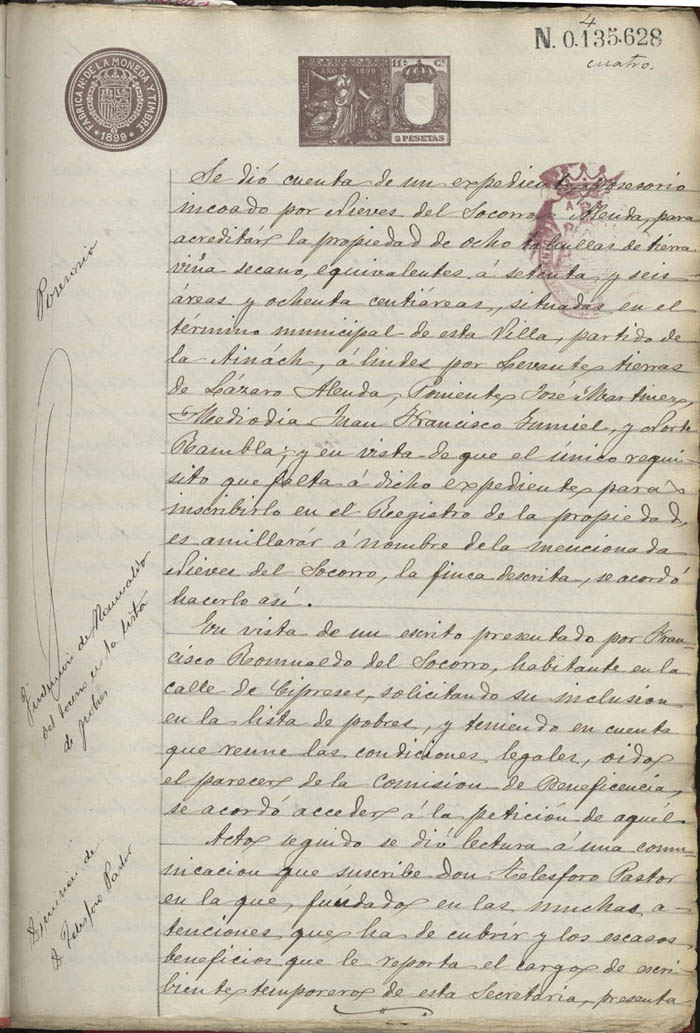 4
N. 0.135.628
cuatro.
FÁBRICA Nl. DE LA MONEDA Y TIMBRE
1899
AÑO 1899
11ª Cl.
2 PESETAS
Se dió cuenta de un expediente posesorio
incoado por Nieves del Socorro Alenda, para
acreditár la propiedad de ocho tahullas de tierra
viña secano, equivalentes á setenta y seis
áreas y ochenta centiáreas, situadas en el
término municipal de esta Villa, partido de
la Ainách, á lindes por Levante tierras
de Lázaro Alenda, Poniente José Martinez,
Mediodia Juan Francisco Jumiel, y Norte
Rambla; y en vista de que el único requi-
sito que falta á dicho expediente para
inscribirlo en el Registro de la propiedad,
es amillarár á nombre de la mencionada
Nieves del Socorro, la finca descrita, se acordó
hacerlo así.
En vista de un escrito presentado por Fran-
cisco Romualdo del Socorro, habitante en la
calle de Cipreses, solicitando su inclusion
en la lista de pobres, y teniendo en cuenta
que reune las condiciones legales, oido
el parecer de la Comision de Beneficencia,
se acordó acceder á la petición de aquél.
Acto seguido se dió lectura á una comu-
nicacion que suscribe Don Telesforo Pastor
en la que, fundado en las muchas a-
tenciones que ha de cubrir y los escasos
beneficios que le reporta el cargo de escri-
biente temporero de esta Secretaría, presenta
Posesorio
de Romualdo
del Socorro en la lista
de pobres
Dimision de
D. Telesforo Pastor